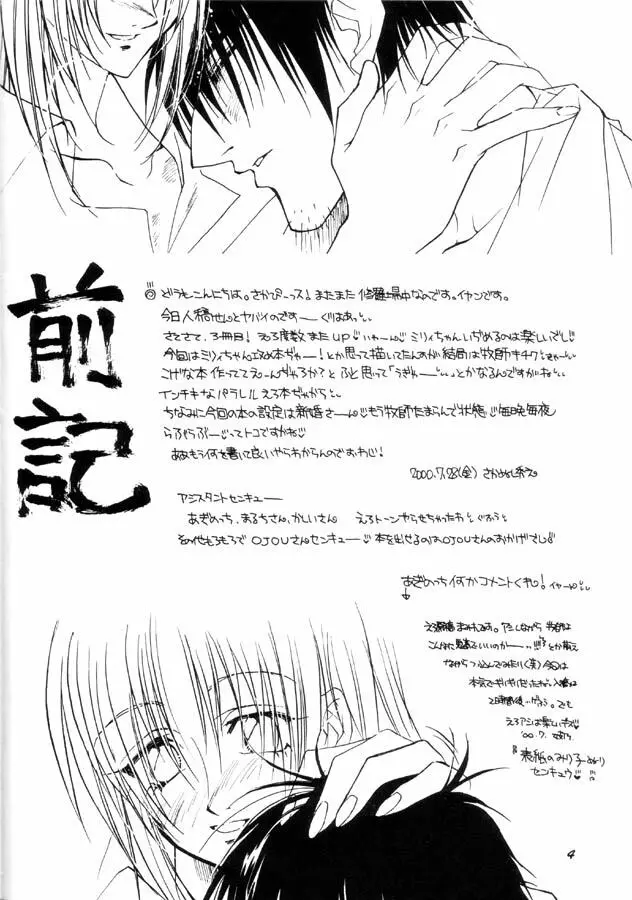 前記
どうもこんにちは。さかぴーっス！またまた修羅場中なのです。イヤンです。
今日入稿せんとヤバイのですーぐはあっ
さてさて、3冊目！えろ度数またUPいやーんミリィちゃんいぢめるのは楽しいでし
今回はミリィちゃんエロ本ぢゃー！とか思って描いてたんだが結局は牧師キチクきゃー
こげな本作っててえーんぢゃろか？とふと思って「うぎゃー」とかなるんですがね
インチキなパラレルえろ本ぢゃから
ちなみに今回の本の設定は新婚さーんもう牧師たまらんで状態毎晩毎夜
らぶらぶーってトコですかね
ああもう何を書いて良いやらわからんのでおわし！
2000.7.28(金)
アシスタントセンキュー
あぎめっち、まるちさん、かしいさん えろトーンやらせちゃったわ ぐふふ
その他もろもろでOJOUさんセンキュー本を出せるのはOJOUさんのおかげさし
あぎめっち何かコメントくれ！イヤーん
えろ原稿まみれです。アシしながら
こんな
ながらつっ込んでみたい(笑)今回は
本気でギリギリだったね。入稿は
2時間後…でも
えろアシは楽しい
'00.7.
『表紙のみり子
センキュウ
4